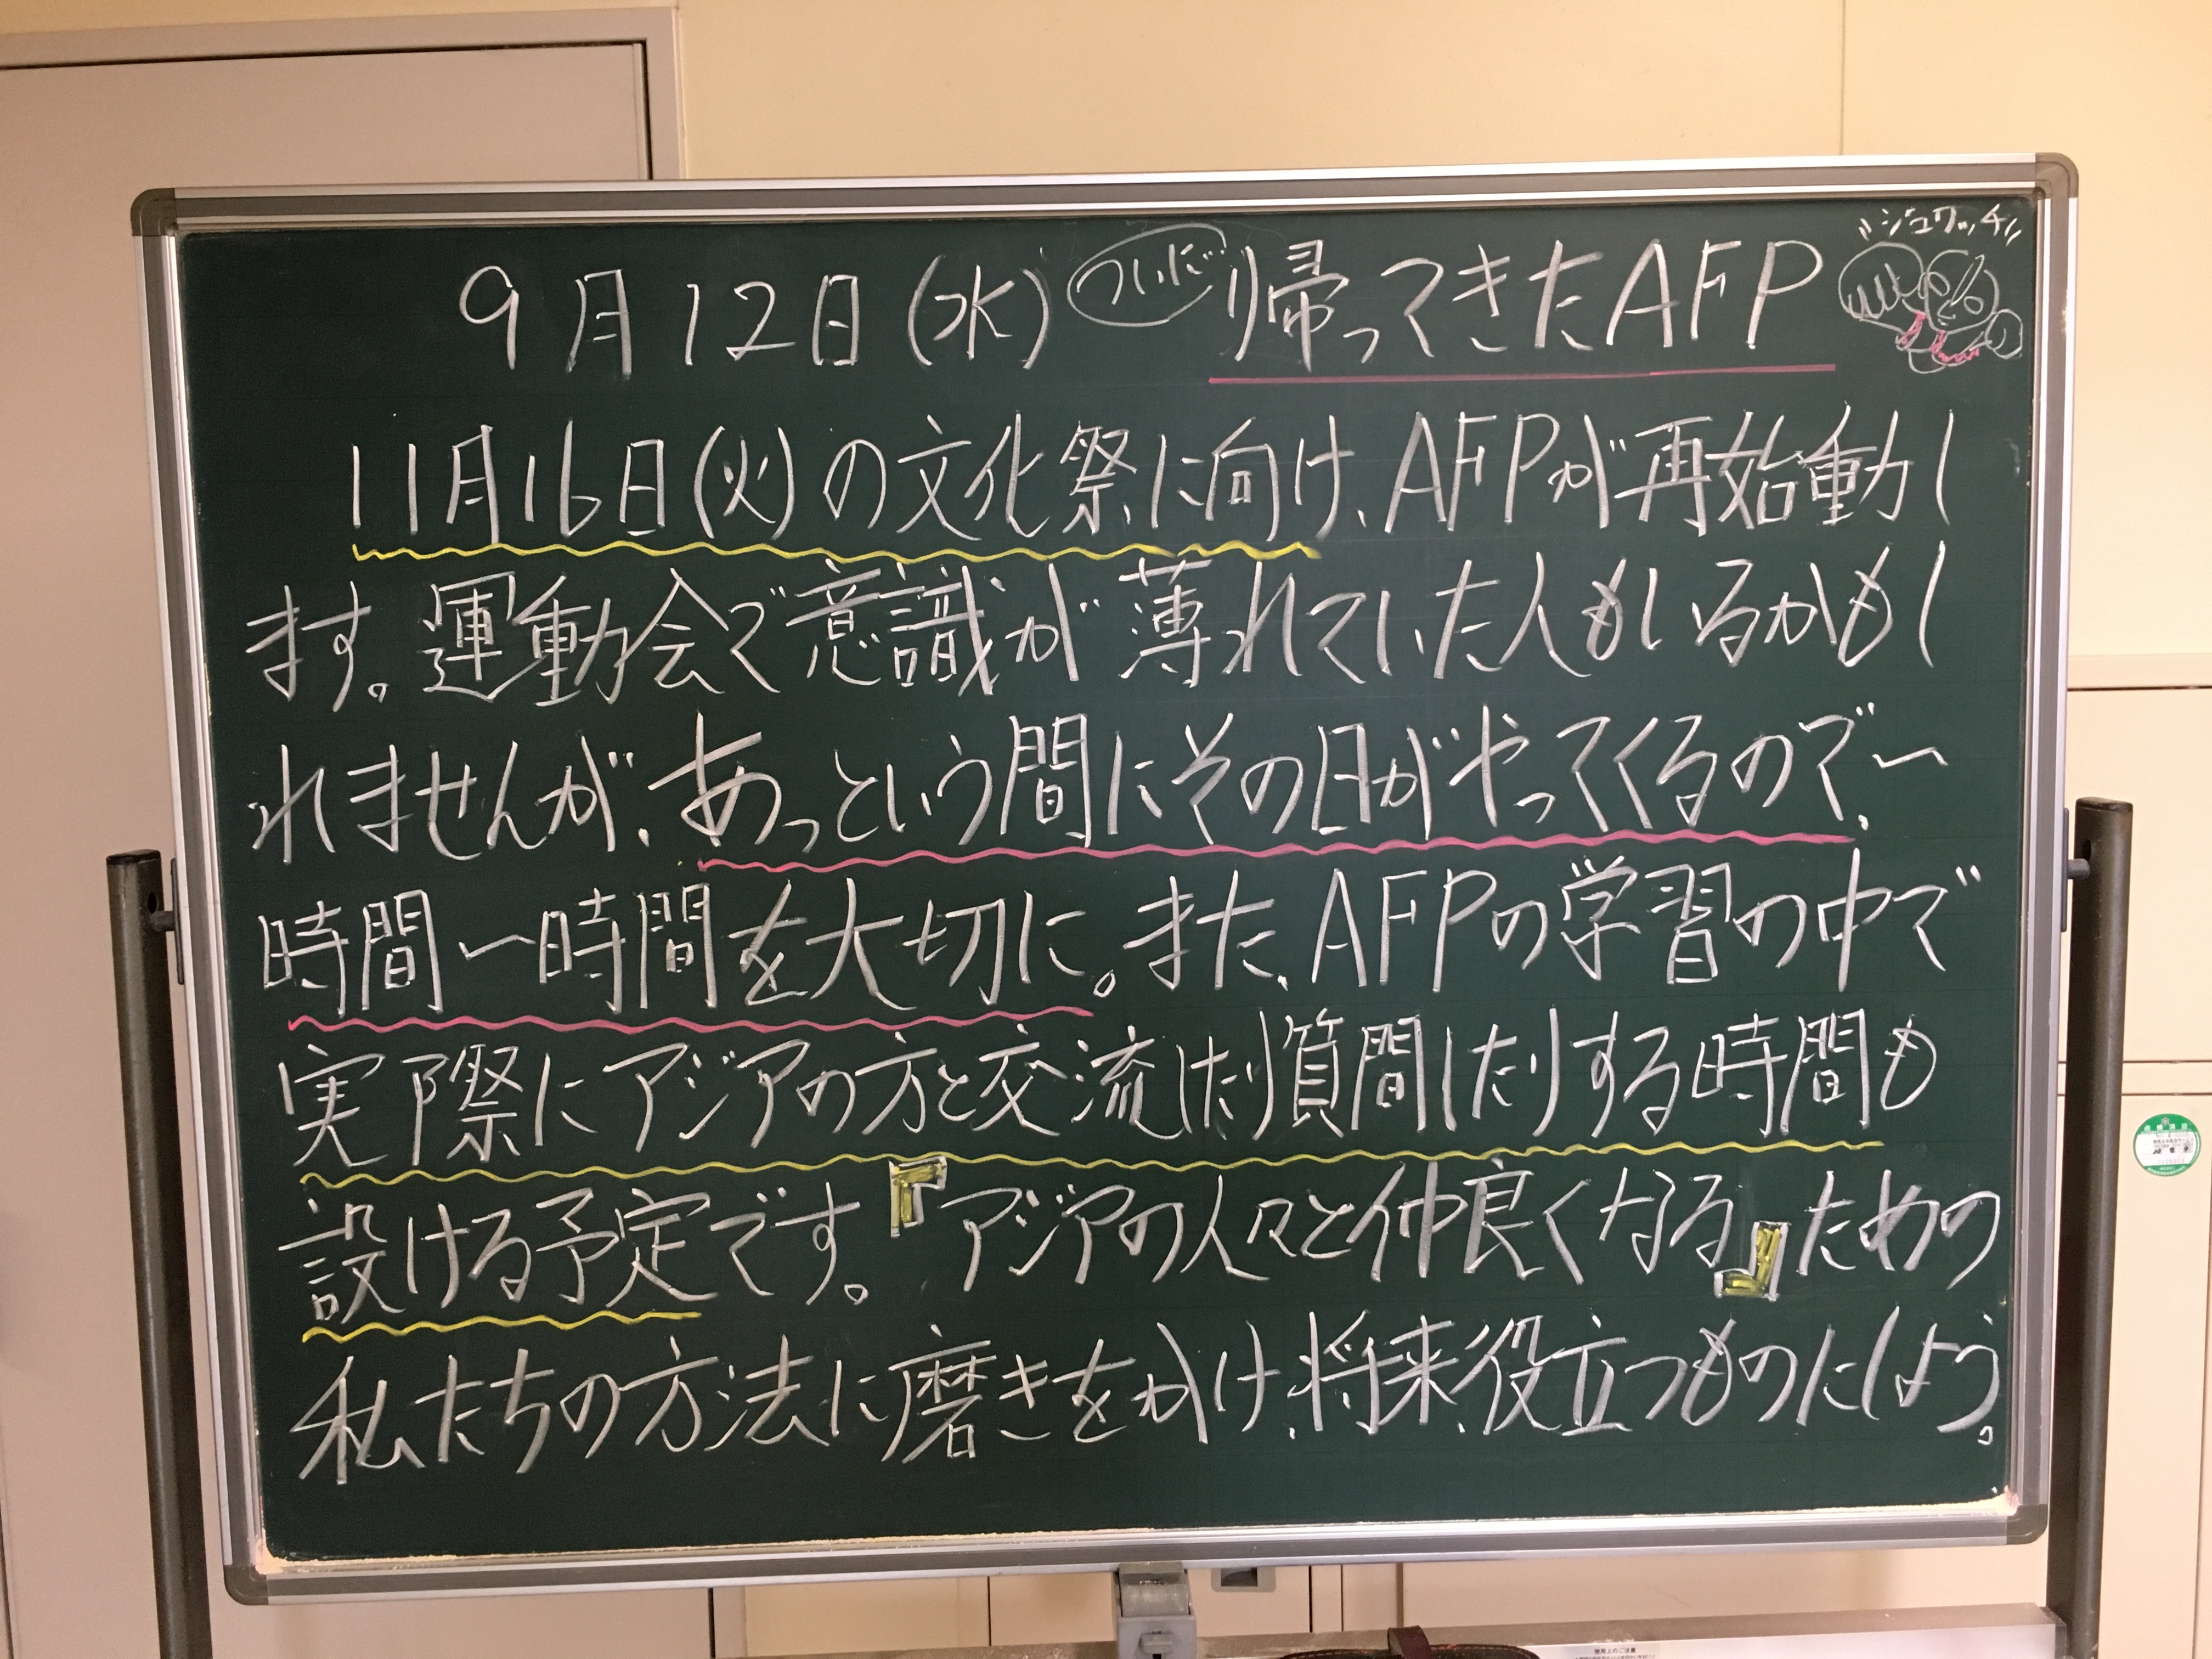 9月12日(水) ついに… 帰ってきたAFP
ジュワッチ
11月16日(火)の文化祭に向け、AFPが再始動し
ます。運動会で意識が薄れていた人もいるかもし
れませんが、あっという間にその日がやってくるので、一
時間一時間を大切に。また、AFPの学習の中で
実際にアジアの方と交流したり質間したりする時間も
設ける予定です。『アジアの人々と仲良くなる』ための
私たちの方法に磨きをかけ、将来、役立つものにしよう。